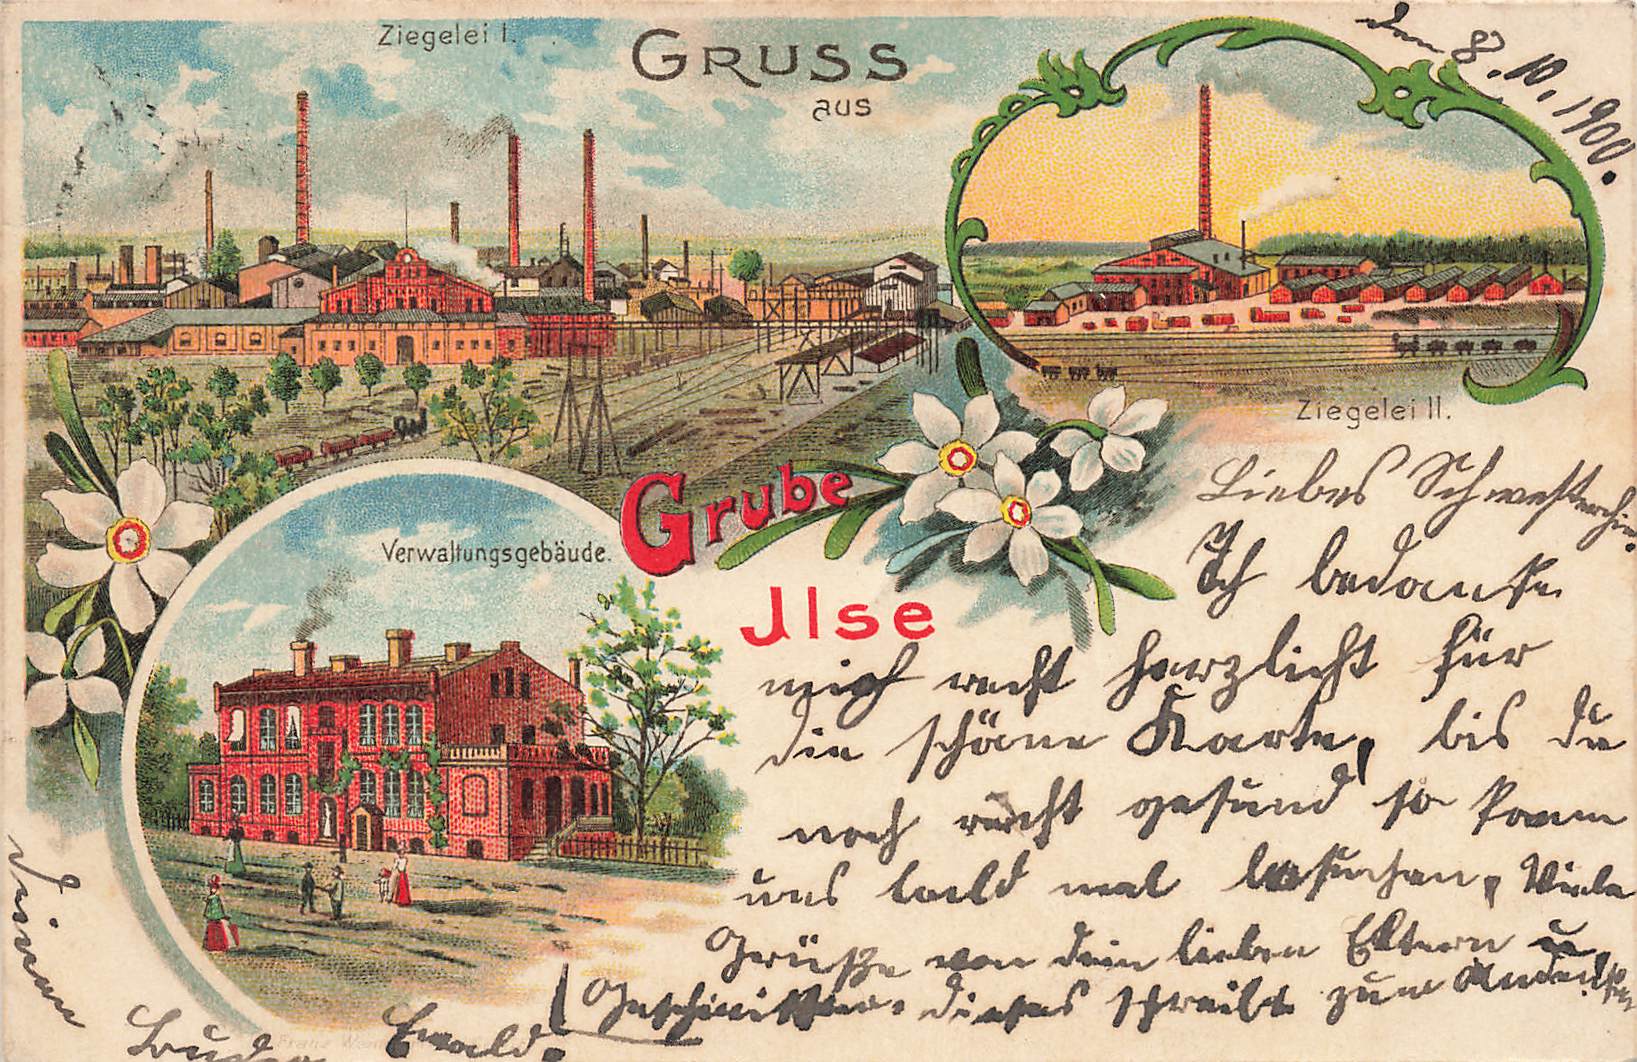 Ziegelei I.
GRUSS
aus
den 8. 10. 1900.
Ziegelei II.
Verwaltungsgebäude.
Grube
Jlse
Liebes Schwesterchen.
Ich bedanke
mich recht herzlich für
die schöne Karte, bis du
noch recht gesund so komm
uns bald mal besuchen, Viele
Grüße von dein lieben Eltern u
Geschwister. dieses schreibt zum Andenken
Deinen
Bruder Ewald.